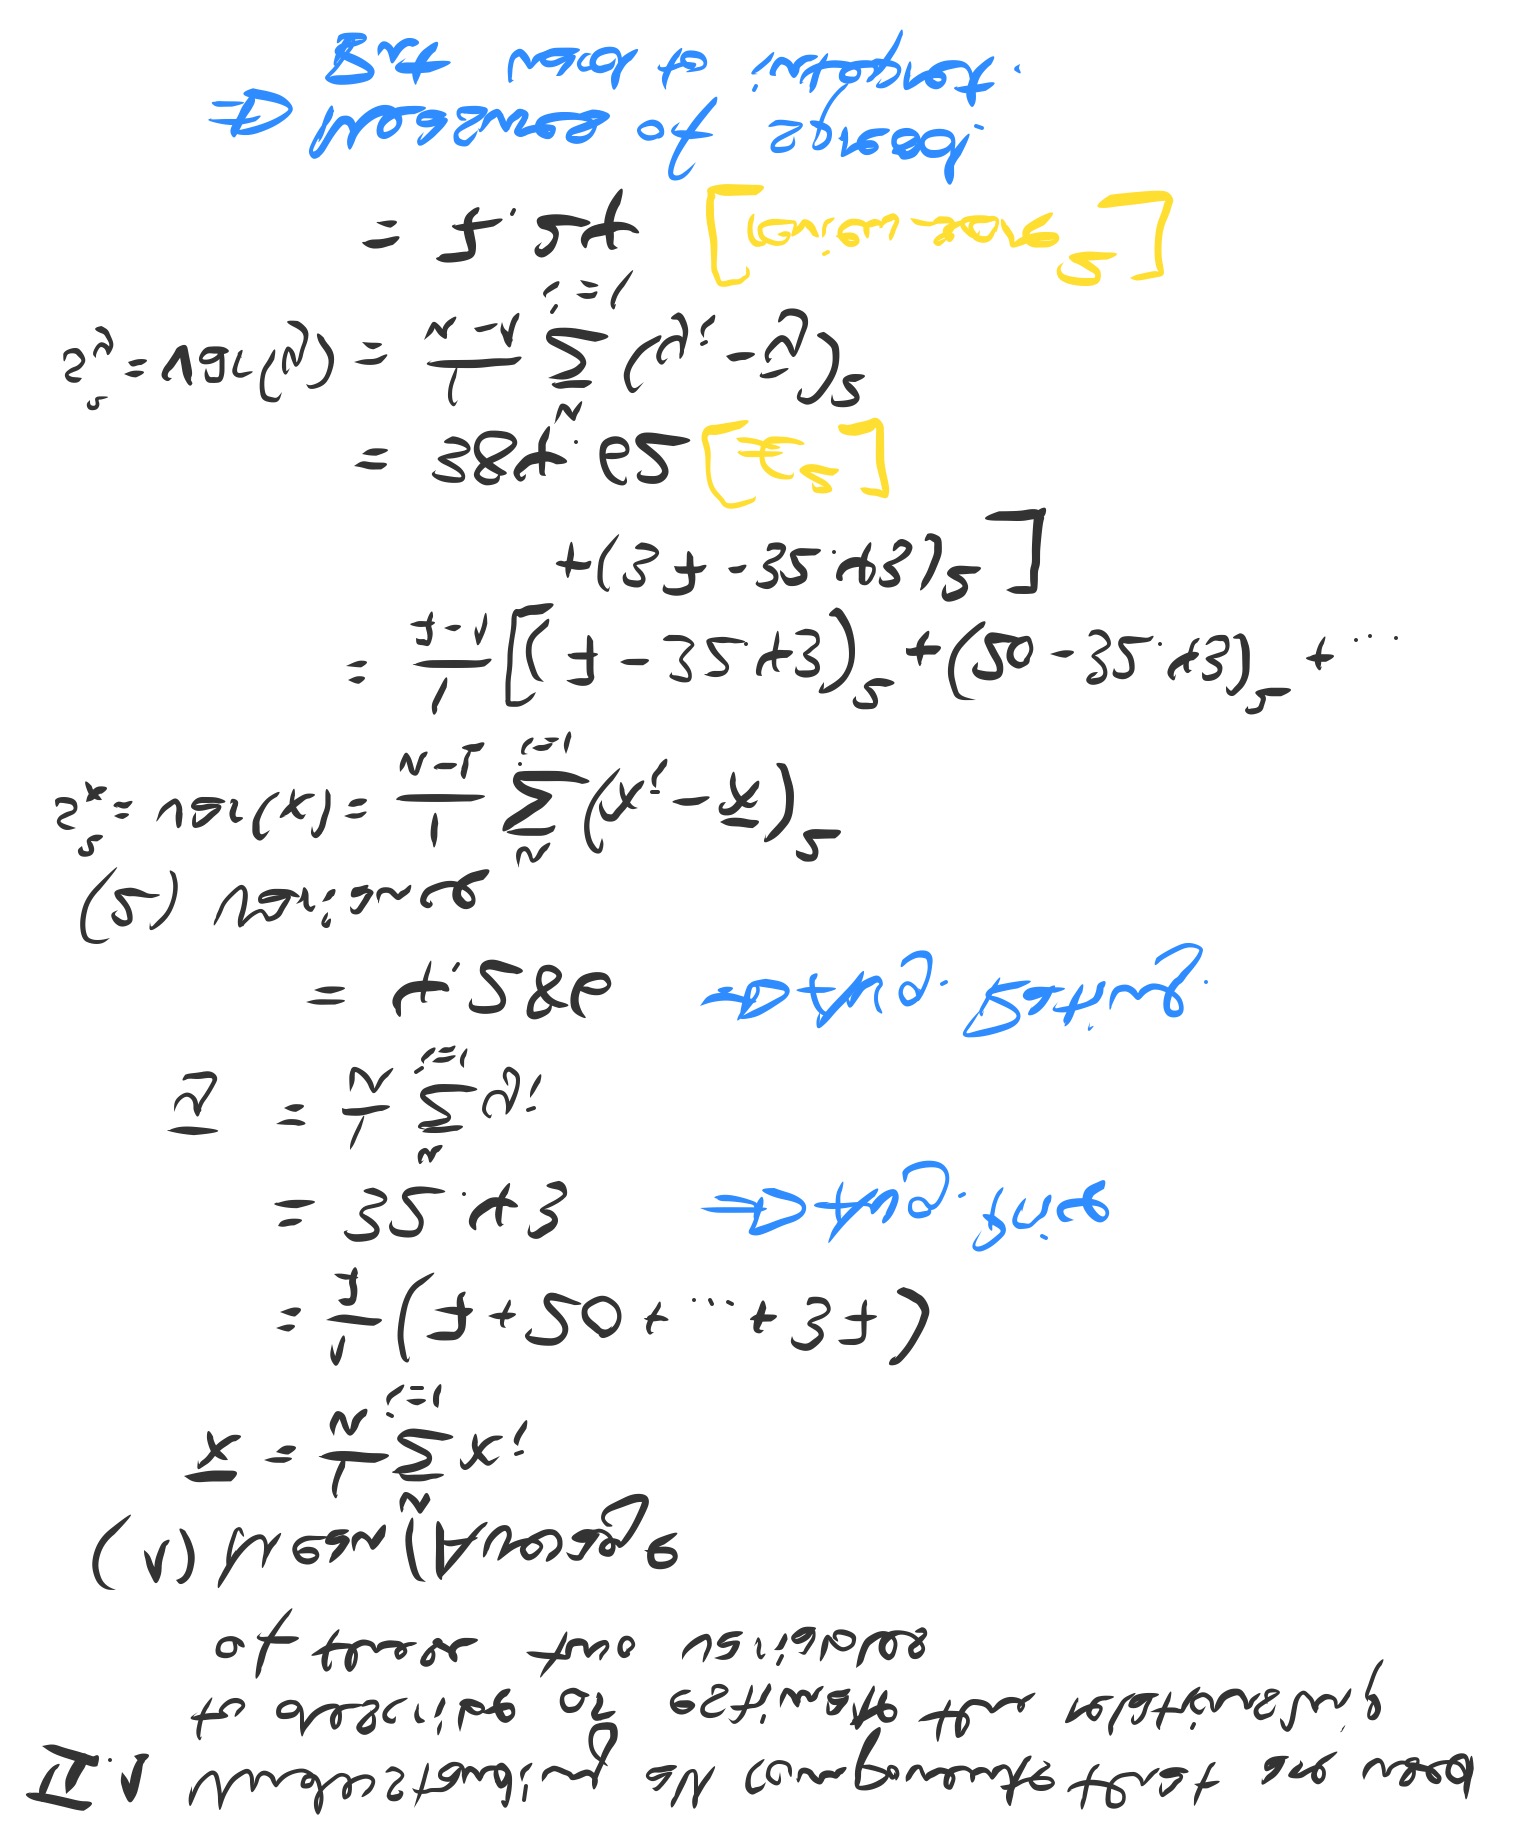 II.1 Understanding all components that are used
to describe or estimate the relationship
of these two variables
(1) Mean/Average
x̄ = 1/n Σ_{i=1}^{n} x_i
= 1/7 (7+20+...+37)
= 32.43 ⇒ Avg. Price
ȳ = 1/n Σ_{i=1}^{n} y_i
= 4.286 ⇒ Avg. Rating.
(2) Variance
s_x^2 = var(x) = 1/(n-1) Σ_{i=1}^{n} (x_i - x̄)^2
= 1/(7-1) [(7-32.43)^2 + (20-32.43)^2 + ...
+(37-32.43)^2]
= 384.62 [€^2]
s_y^2 = var(y) = 1/(n-1) Σ_{i=1}^{n} (y_i - ȳ)^2
= 7.24 [review_score^2]
⇒ Measures of spread.
But hard to intepret.